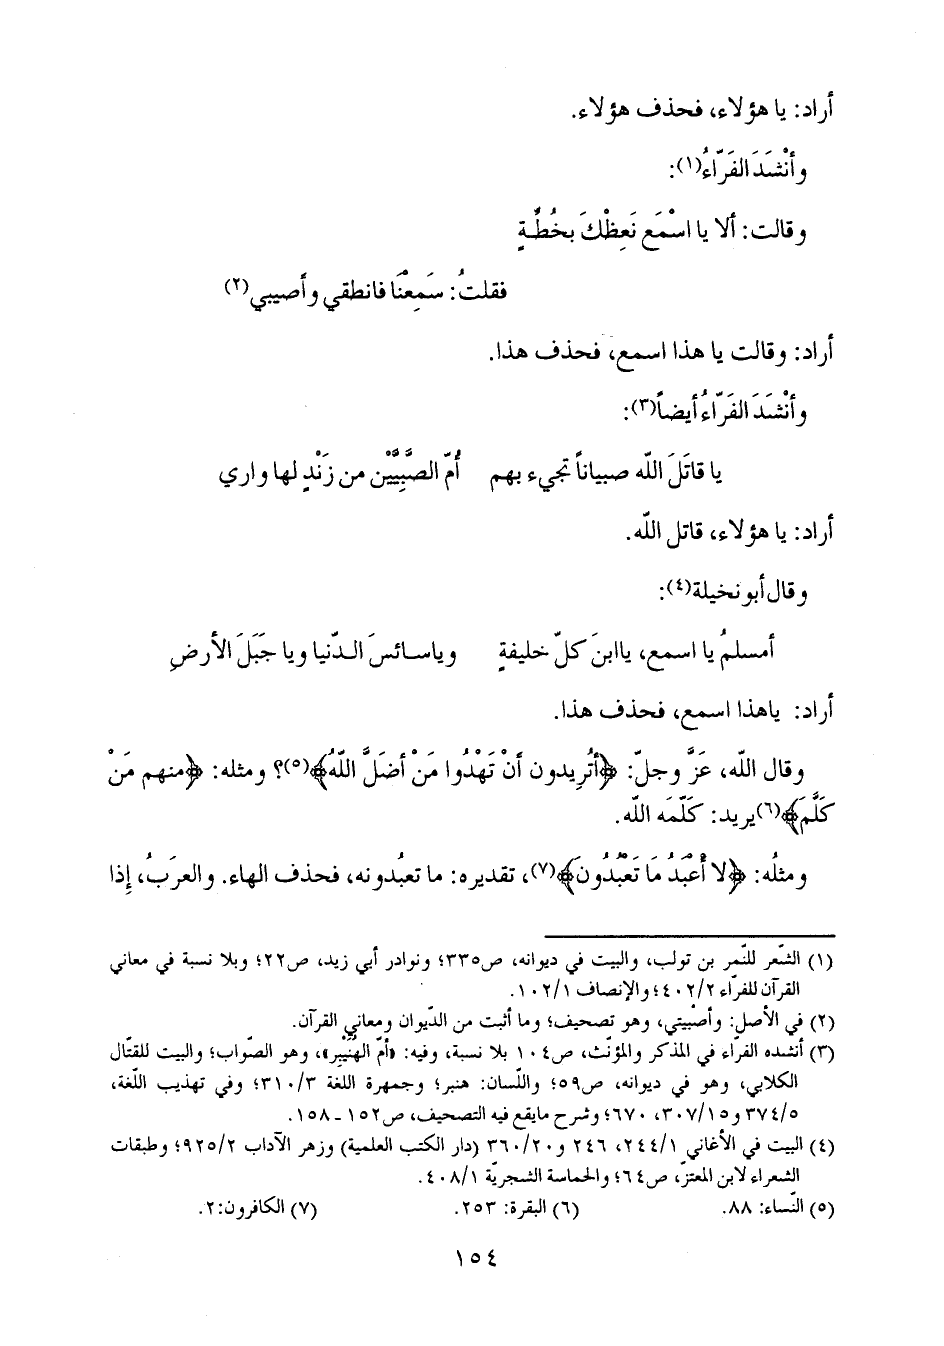 أراد: يا هؤلاء، فحذف هؤلاء.
وأنْشَدَ الفَرّاءُ(١):
وقالت: ألا يا اسْمَع نَعِظْكَ بخُطَّةٍ
فقلتُ: سَمِعْنَا فانطقي وأصيبي(٢)
أراد: وقالت يا هذا اسمع، فحذف هذا.
وأنْشَدَ الفَرّاءُ أيضاً(٣):
يا قاتَلَ اللّه صبياناً تجيء بهم أُمّ الصَّبِيَّيْن من زَنْدٍ لها واري
أراد: يا هؤلاء، قاتل اللّه.
وقال أبو نخيلة(٤):
أمسلمُ يا اسمع، ياابنَ كلّ خليفةٍ وياسائسَ الدّنيا ويا جَبَلَ الأرضِ
أراد: ياهذا اسمع، فحذف هذا.
وقال اللّه، عَزَّ وجلّ: ﴿أتُرِيدون أنْ تَهْدُوا مَنْ أضَلَّ اللّهُ﴾(٥)؟ ومثله: ﴿منهم مَنْ
كَلَّمَ﴾(٦) يريد: كَلَّمَه اللّه.
ومثلُه: ﴿لا أعْبُدُ مَا تَعْبُدُونَ﴾(٧)، تقديره: ما تعبُدونه، فحذف الهاء. والعرَبُ، إذا
(١) الشّعر للنّمر بن تولب، والبيت في ديوانه، ص٣٣٥؛ ونوادر أبي زيد، ص٢٢؛ وبلا نسبة في معاني
القرآن للفرّاء ٤٠٢/٢؛ والإنصاف ١٠٢/١.
(٢) في الأصل: وأصْبيتي، وهو تصحيف؛ وما أثبت من الدّيوان ومعاني القرآن.
(٣) أنشده الفرّاء في المذكر والمؤنّث، ص١٠٤ بلا نسبة، وفيه: «أمّ الهُنَيْبِر»، وهو الصّواب؛ والبيت للقتّال
الكلابي، وهو في ديوانه، ص٥٩؛ واللّسان: هنبر؛ وجمهرة اللغة ٣١٠/٣؛ وفي تهذيب اللّغة،
٣٧٤/٥ و٣٠٧/١٥، ٦٧٠؛ وشرح مايقع فيه التصحيف، ص١٥٢-١٥٨.
(٤) البيت في الأغاني ٢٤٤/١، ٢٤٦ و٣٦٠/٢٠ (دار الكتب العلمية) وزهر الآداب ٩٢٥/٢؛ وطبقات
الشعراء لابن المعتزّ، ص٦٤؛ والحماسة الشجريّة ٤٠٨/١.
(٥) النّساء: ٨٨. (٦) البقرة: ٢٥٣. (٧) الكافرون: ٢.
١٥٤